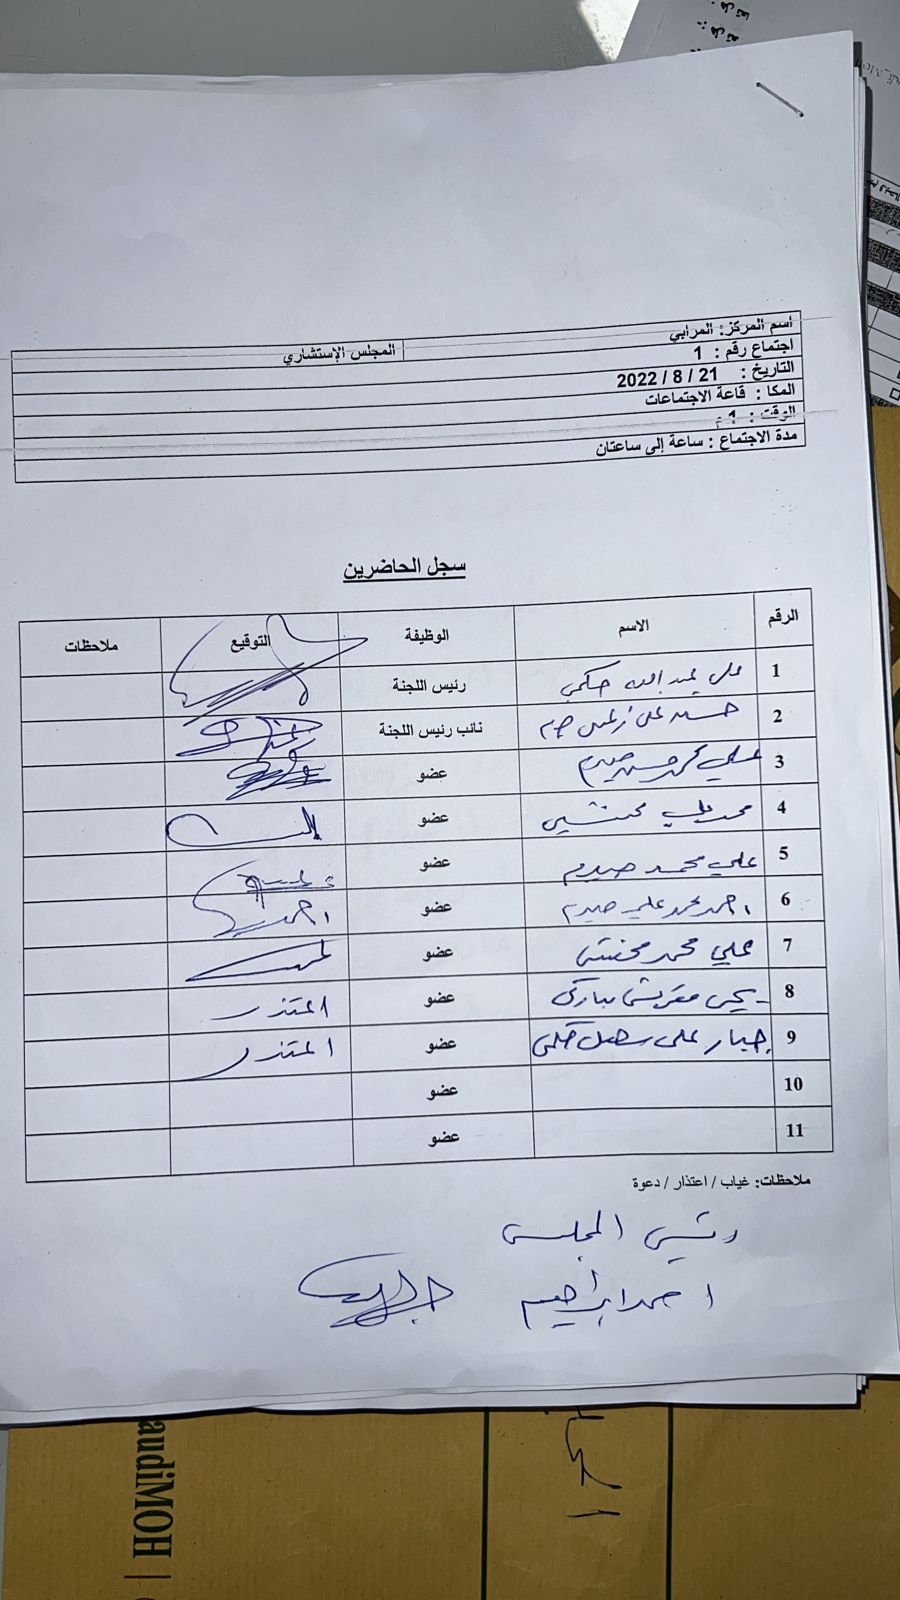 اسم المركز: المرابي
المجلس الإستشاري
اجتماع رقم : 1
التاريخ : 21 / 8 / 2022
المكا : قاعة الاجتماعات
الوقت : 1 م
مدة الاجتماع : ساعة إلى ساعتان
سجل الحاضرين
الرقم الاسم الوظيفة التوقيع ملاحظات
1 علي عبدالله حكمي رئيس اللجنة
2 حسين علي نائب رئيس اللجنة
3 علي محمد حسين صيرم عضو
4 محمد علي محنشي عضو
5 علي محمد صيرم عضو
6 احمد محمد علي صيرم عضو احمد
7 علي محمد محنشي عضو
8 يحي مباركي عضو المتذر
9 جبار علي سهل حكمي عضو المتذر
10 عضو
11 عضو
ملاحظات: غياب / اعتذار / دعوة
رئيس المجلس
احمد ابراهيم
audiMOH |